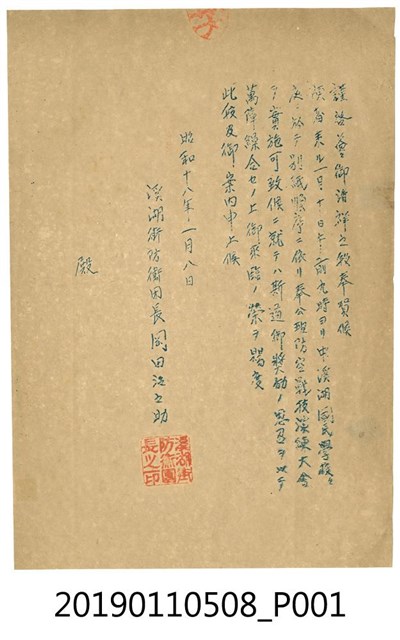 謹啓益御清鮮之段奉賀候
陳者来ル一月十日午前九時ヨリ中溪湖国民学校々
庭ニ於テ別紙順序ニ依リ奉公班防空戦技演練大会
ヲ実施可致候ニ就テハ斯道御奨励ノ思召ヲ以テ
萬障繰合セノ上御来臨ノ栄ヲ賜度
此候及御案内申上候
昭和十八年一月八日
溪湖街防衛団長 岡田治之助
殿
溪湖街
防衛團
長之印
20190110508_P001